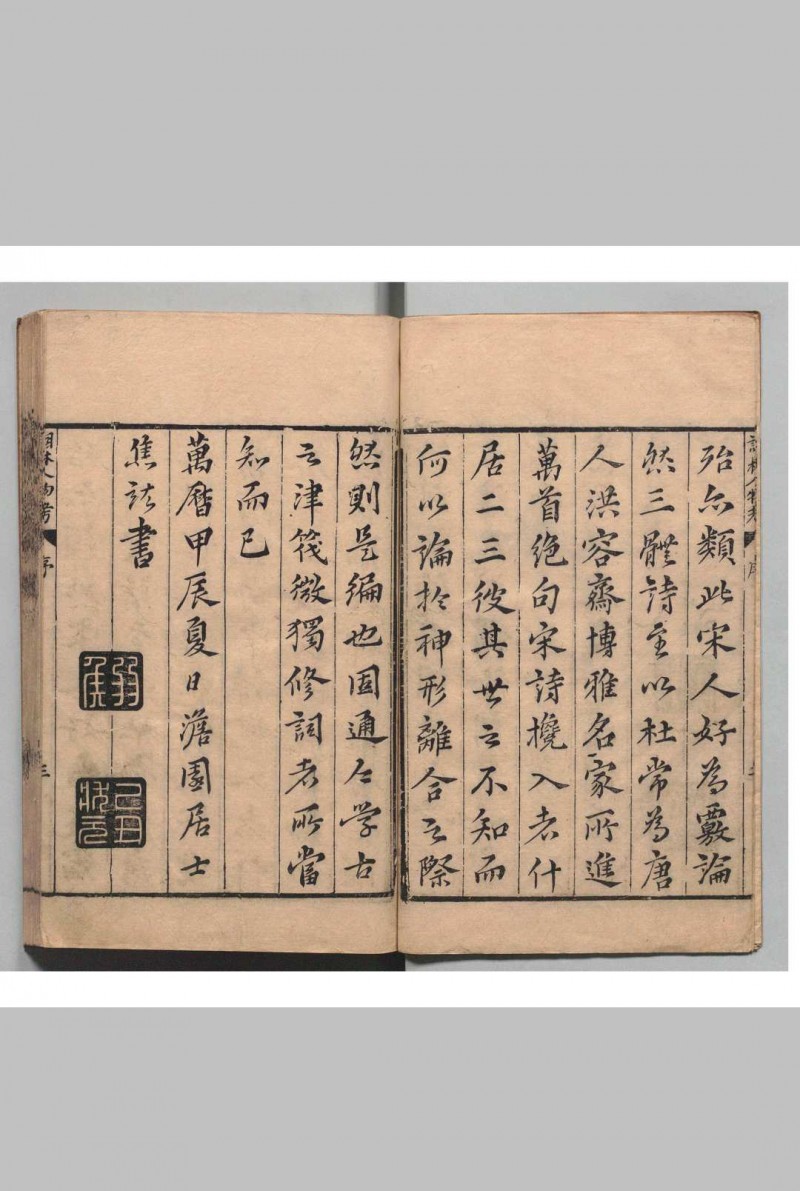 殆亦類此宋人好為覈論
然三體詩至以杜常為唐
人洪容齋博雅名家所進
萬首絶句宋詩攙入者什
居二三彼其世之不知而
何以論扵神形離合之際
然則是編也固通今學古
之津筏微獨修詞者所當
知而已
萬曆甲辰夏日澹園居士
焦竑書
弱矦
己丑狀元
序
三